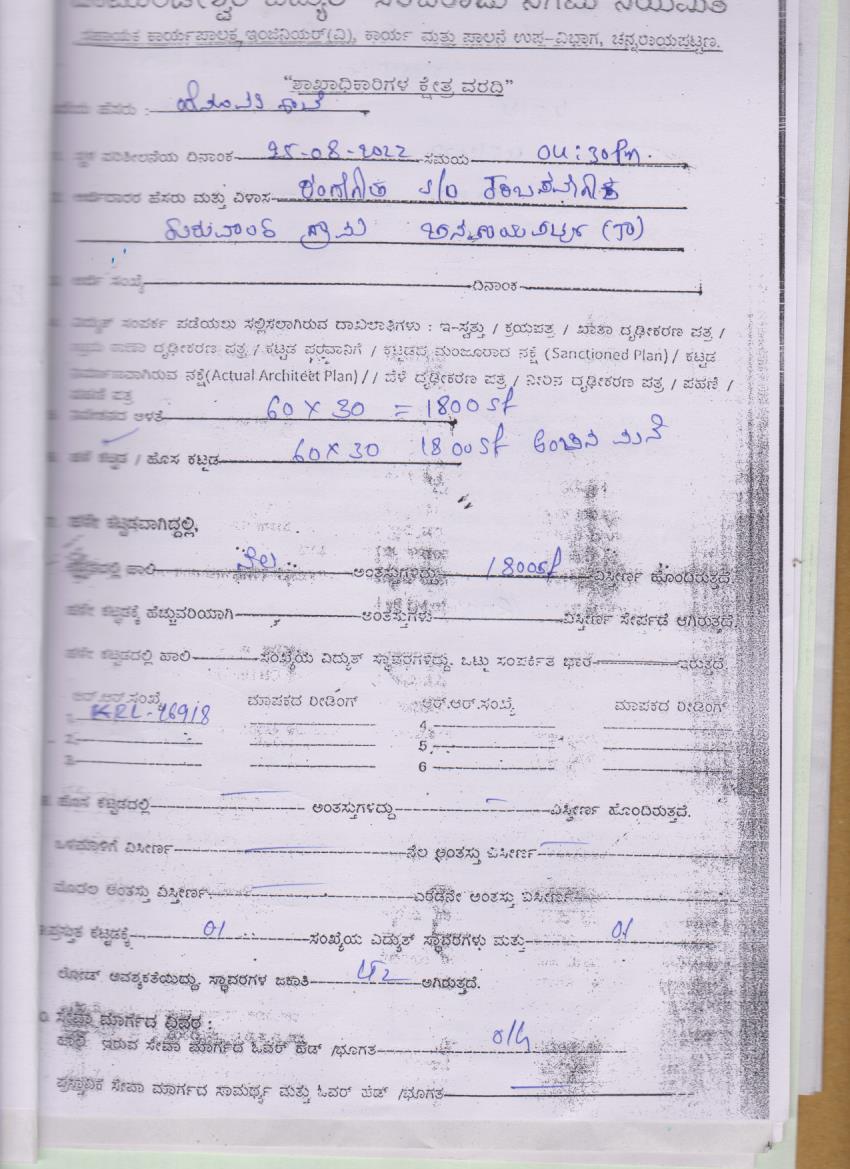 ವಿದ್ಯುತ್ ಸರಬರಾಜು ನಿಗಮ ನಿಯಮಿತ
ಸಹಾಯಕ ಕಾರ್ಯಪಾಲಕ ಇಂಜಿನಿಯರ್(ವಿ), ಕಾರ್ಯ ಮತ್ತು ಪಾಲನೆ ಉಪ-ವಿಭಾಗ, ಚನ್ನರಾಯಪಟ್ಟಣ.
"ಶಾಖಾಧಿಕಾರಿಗಳ ಕ್ಷೇತ್ರ ವರದಿ"
ಹೆಸರು :
ಸ್ಥಳ ಪರಿಶೀಲನೆಯ ದಿನಾಂಕ 25-08-2022 ಸಮಯ 04:30 Pm.
ಅರ್ಜಿದಾರರ ಹೆಸರು ಮತ್ತು ವಿಳಾಸ ರಂಗೇಗೌಡ S/O
ಗ್ರಾಮ (ತಾ)
ಅರ್ಜಿ ಸಂಖ್ಯೆ ದಿನಾಂಕ
ವಿದ್ಯುತ್ ಸಂಪರ್ಕ ಪಡೆಯಲು ಸಲ್ಲಿಸಲಾಗಿರುವ ದಾಖಲಾತಿಗಳು : ಇ-ಸ್ವತ್ತು / ಕ್ರಯಪತ್ರ / ಖಾತಾ ದೃಢೀಕರಣ ಪತ್ರ /
ದೃಢೀಕರಣ ಪತ್ರ / ಕಟ್ಟಡ ಪರವಾನಿಗೆ / ಕಟ್ಟಡದ ಮಂಜೂರಾದ ನಕ್ಷೆ (Sanctioned Plan) / ಕಟ್ಟಡ
ನಿರ್ಮಾಣವಾಗಿರುವ ನಕ್ಷೆ(Actual Architect Plan) / / ಬೆಳೆ ದೃಢೀಕರಣ ಪತ್ರ / ನೀರಿನ ದೃಢೀಕರಣ ಪತ್ರ / ಪಹಣಿ /
ಪತ್ರ
ನಿವೇಶನದ ಅಳತೆ 60 X 30 = 1800 Sf
ಹಳೆ ಕಟ್ಟಡ / ಹೊಸ ಕಟ್ಟಡ 60 X 30 1800 Sf ಹಂಚಿನ ಮನೆ
ಹಳೇ ಕಟ್ಟಡವಾಗಿದ್ದಲ್ಲಿ,
ಕಟ್ಟಡದಲ್ಲಿ ಹಾಲಿ ನೆಲ ಅಂತಸ್ತುಗಳಿದ್ದು 1800sf ವಿಸ್ತೀರ್ಣ ಹೊಂದಿರುತ್ತದೆ.
ಹಳೇ ಕಟ್ಟಡಕ್ಕೆ ಹೆಚ್ಚುವರಿಯಾಗಿ ಅಂತಸ್ತುಗಳು ವಿಸ್ತೀರ್ಣ ಸೇರ್ಪಡೆ ಆಗಿರುತ್ತದೆ.
ಹಳೇ ಕಟ್ಟಡದಲ್ಲಿ ಹಾಲಿ ಸಂಖ್ಯೆಯ ವಿದ್ಯುತ್ ಸ್ಥಾವರಗಳಿದ್ದು, ಒಟ್ಟು ಸಂಪರ್ಕಿತ ಭಾರ ಇರುತ್ತದೆ.
ಆರ್.ಆರ್.ಸಂಖ್ಯೆ ಮಾಪಕದ ರೀಡಿಂಗ್ ಆರ್.ಆರ್.ಸಂಖ್ಯೆ ಮಾಪಕದ ರೀಡಿಂಗ್
1. KRL-26918 4
2. 5
3. 6
ಹೊಸ ಕಟ್ಟಡದಲ್ಲಿ ಅಂತಸ್ತುಗಳಿದ್ದು ವಿಸ್ತೀರ್ಣ ಹೊಂದಿರುತ್ತದೆ.
ಒಳಮಾಳಿಗೆ ವಿಸೀರ್ಣ ನೆಲ ಅಂತಸ್ತು ವಿಸೀರ್ಣ
ಮೊದಲ ಅಂತಸ್ತು ವಿಸ್ತೀರ್ಣ ಎರಡನೇ ಅಂತಸ್ತು ವಿಸೀರ್ಣ
ಪ್ರಸ್ತುತ ಕಟ್ಟಡಕ್ಕೆ 01 ಸಂಖ್ಯೆಯ ವಿದ್ಯುತ್ ಸ್ಥಾವರಗಳು ಮತ್ತು 01
ಲೋಡ್ ಅವಶ್ಯಕತೆಯಿದ್ದು, ಸ್ಥಾವರಗಳ ಜಕಾತಿ ಆಗಿರುತ್ತದೆ.
ಸೇವಾ ಮಾರ್ಗದ ವಿವರ :
ಹಾಲಿ ಇರುವ ಸೇವಾ ಮಾರ್ಗದ ಓವರ್ ಹೆಡ್ /ಭೂಗತ o/h
ಪ್ರಸ್ತಾವಿಕ ಸೇವಾ ಮಾರ್ಗದ ಸಾಮರ್ಥ್ಯ ಮತ್ತು ಓವರ್ ಹೆಡ್ /ಭೂಗತ